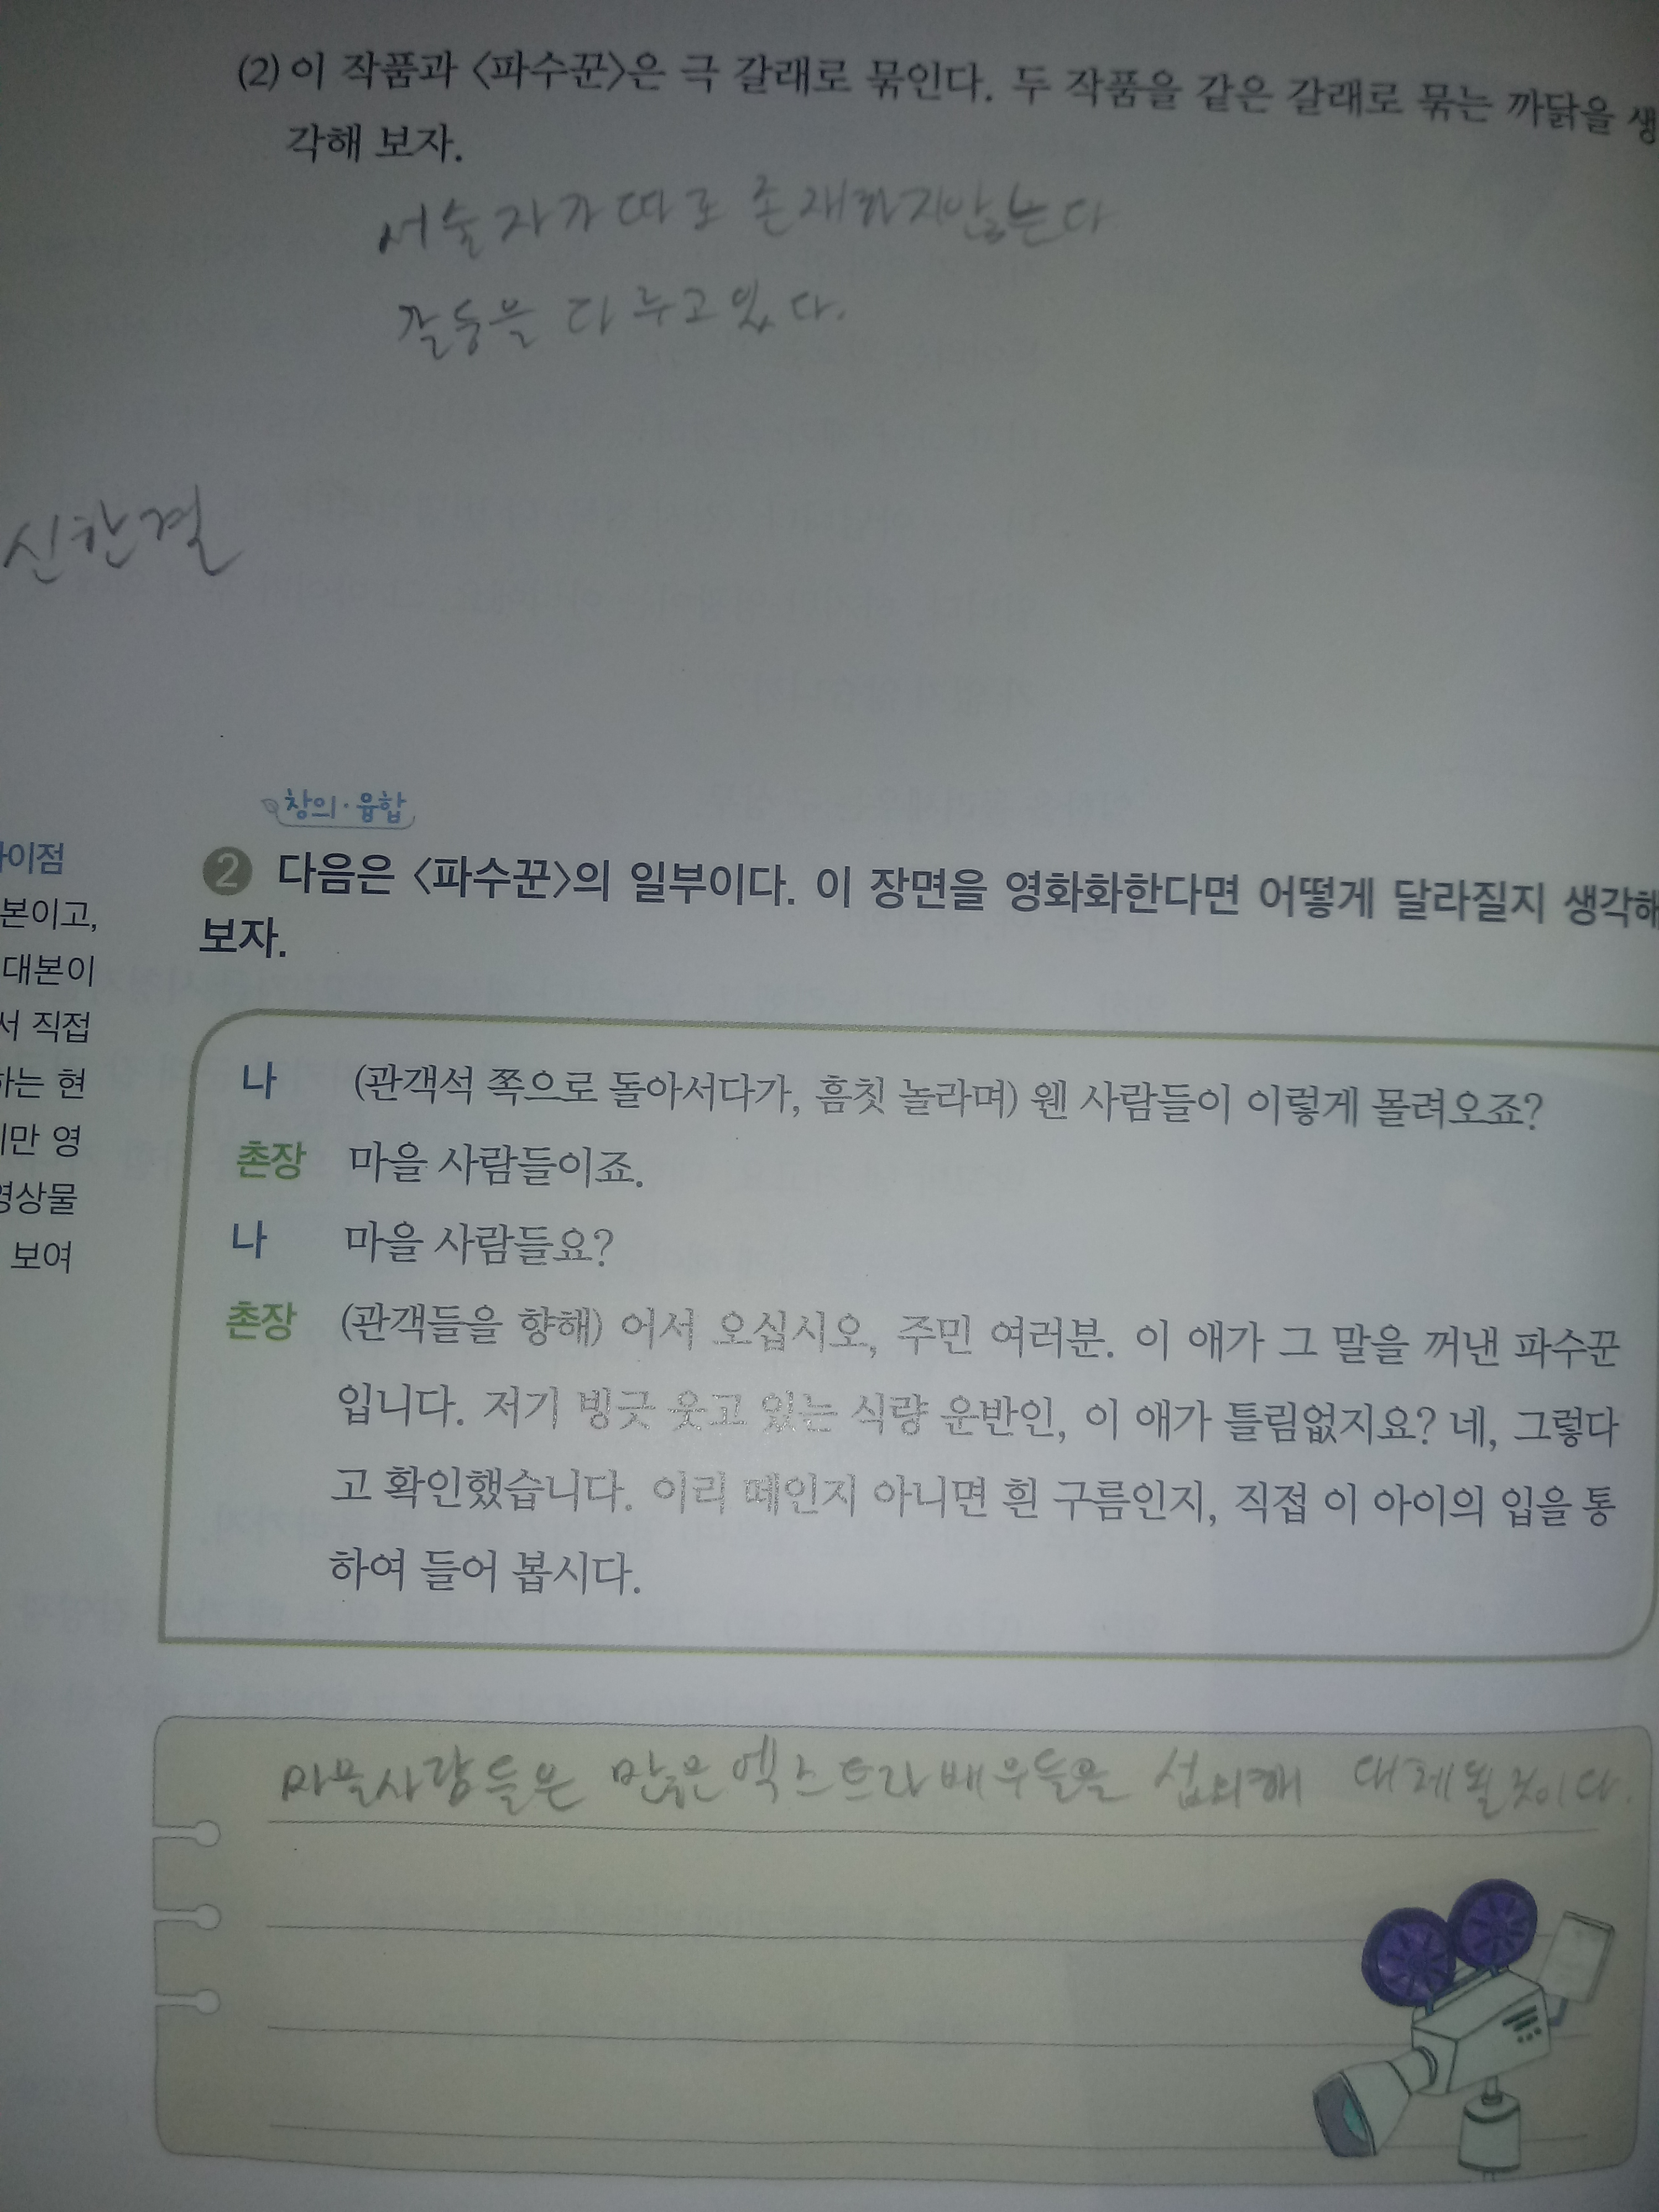 (2) 이 작품과 <파수꾼>은 극 갈래로 묶인다. 두 작품을 같은 갈래로 묶는 까닭을 생
각해 보자.
서술자가 따로 존재하지않는다
갈등을 다루고있다.
신한결
창의·융합
2 다음은 <파수꾼>의 일부이다. 이 장면을 영화화한다면 어떻게 달라질지 생각해
보자.
이점
본이고,
대본이
서 직접
하는 현
만 영
영상물
보여
나 (관객석 쪽으로 돌아서다가, 흠칫 놀라며) 웬 사람들이 이렇게 몰려오죠?
촌장 마을 사람들이죠.
나 마을 사람들요?
촌장 (관객들을 향해) 어서 오십시오, 주민 여러분. 이 애가 그 말을 꺼낸 파수꾼
입니다. 저기 빙긋 웃고 있는 식량 운반인, 이 애가 틀림없지요? 네, 그렇다
고 확인했습니다. 이리 떼인지 아니면 흰 구름인지, 직접 이 아이의 입을 통
하여 들어 봅시다.
마을사람들은 많은 엑스트라 배우들을 섭외해 대체될것이다.